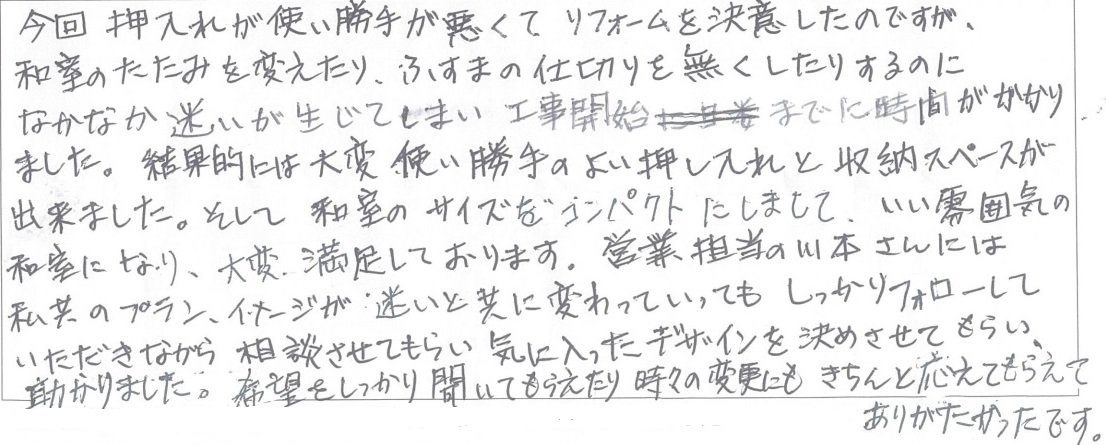 今回 押入れが使い勝手が悪くて リフォームを決意したのですが、
和室のたたみを変えたり、ふすまの仕切りを無くしたりするのに
なかなか迷いが生じてしまい 工事開始までに時間がかかり
ました。結果的には大変使い勝手のよい押し入れと収納スペースが
出来ました。そして 和室のサイズをコンパクトにしまして、いい雰囲気の
和室になり、大変満足しております。営業担当の川本さんには
私共のプラン、イメージが迷いと共に変わっていってもしっかりフォローして
いただきながら 相談させてもらい 気に入ったデザインを決めさせてもらい、
助かりました。希望をしっかり聞いてもらえたり時々の変更にもきちんと応えてもらえて
ありがたかったです。